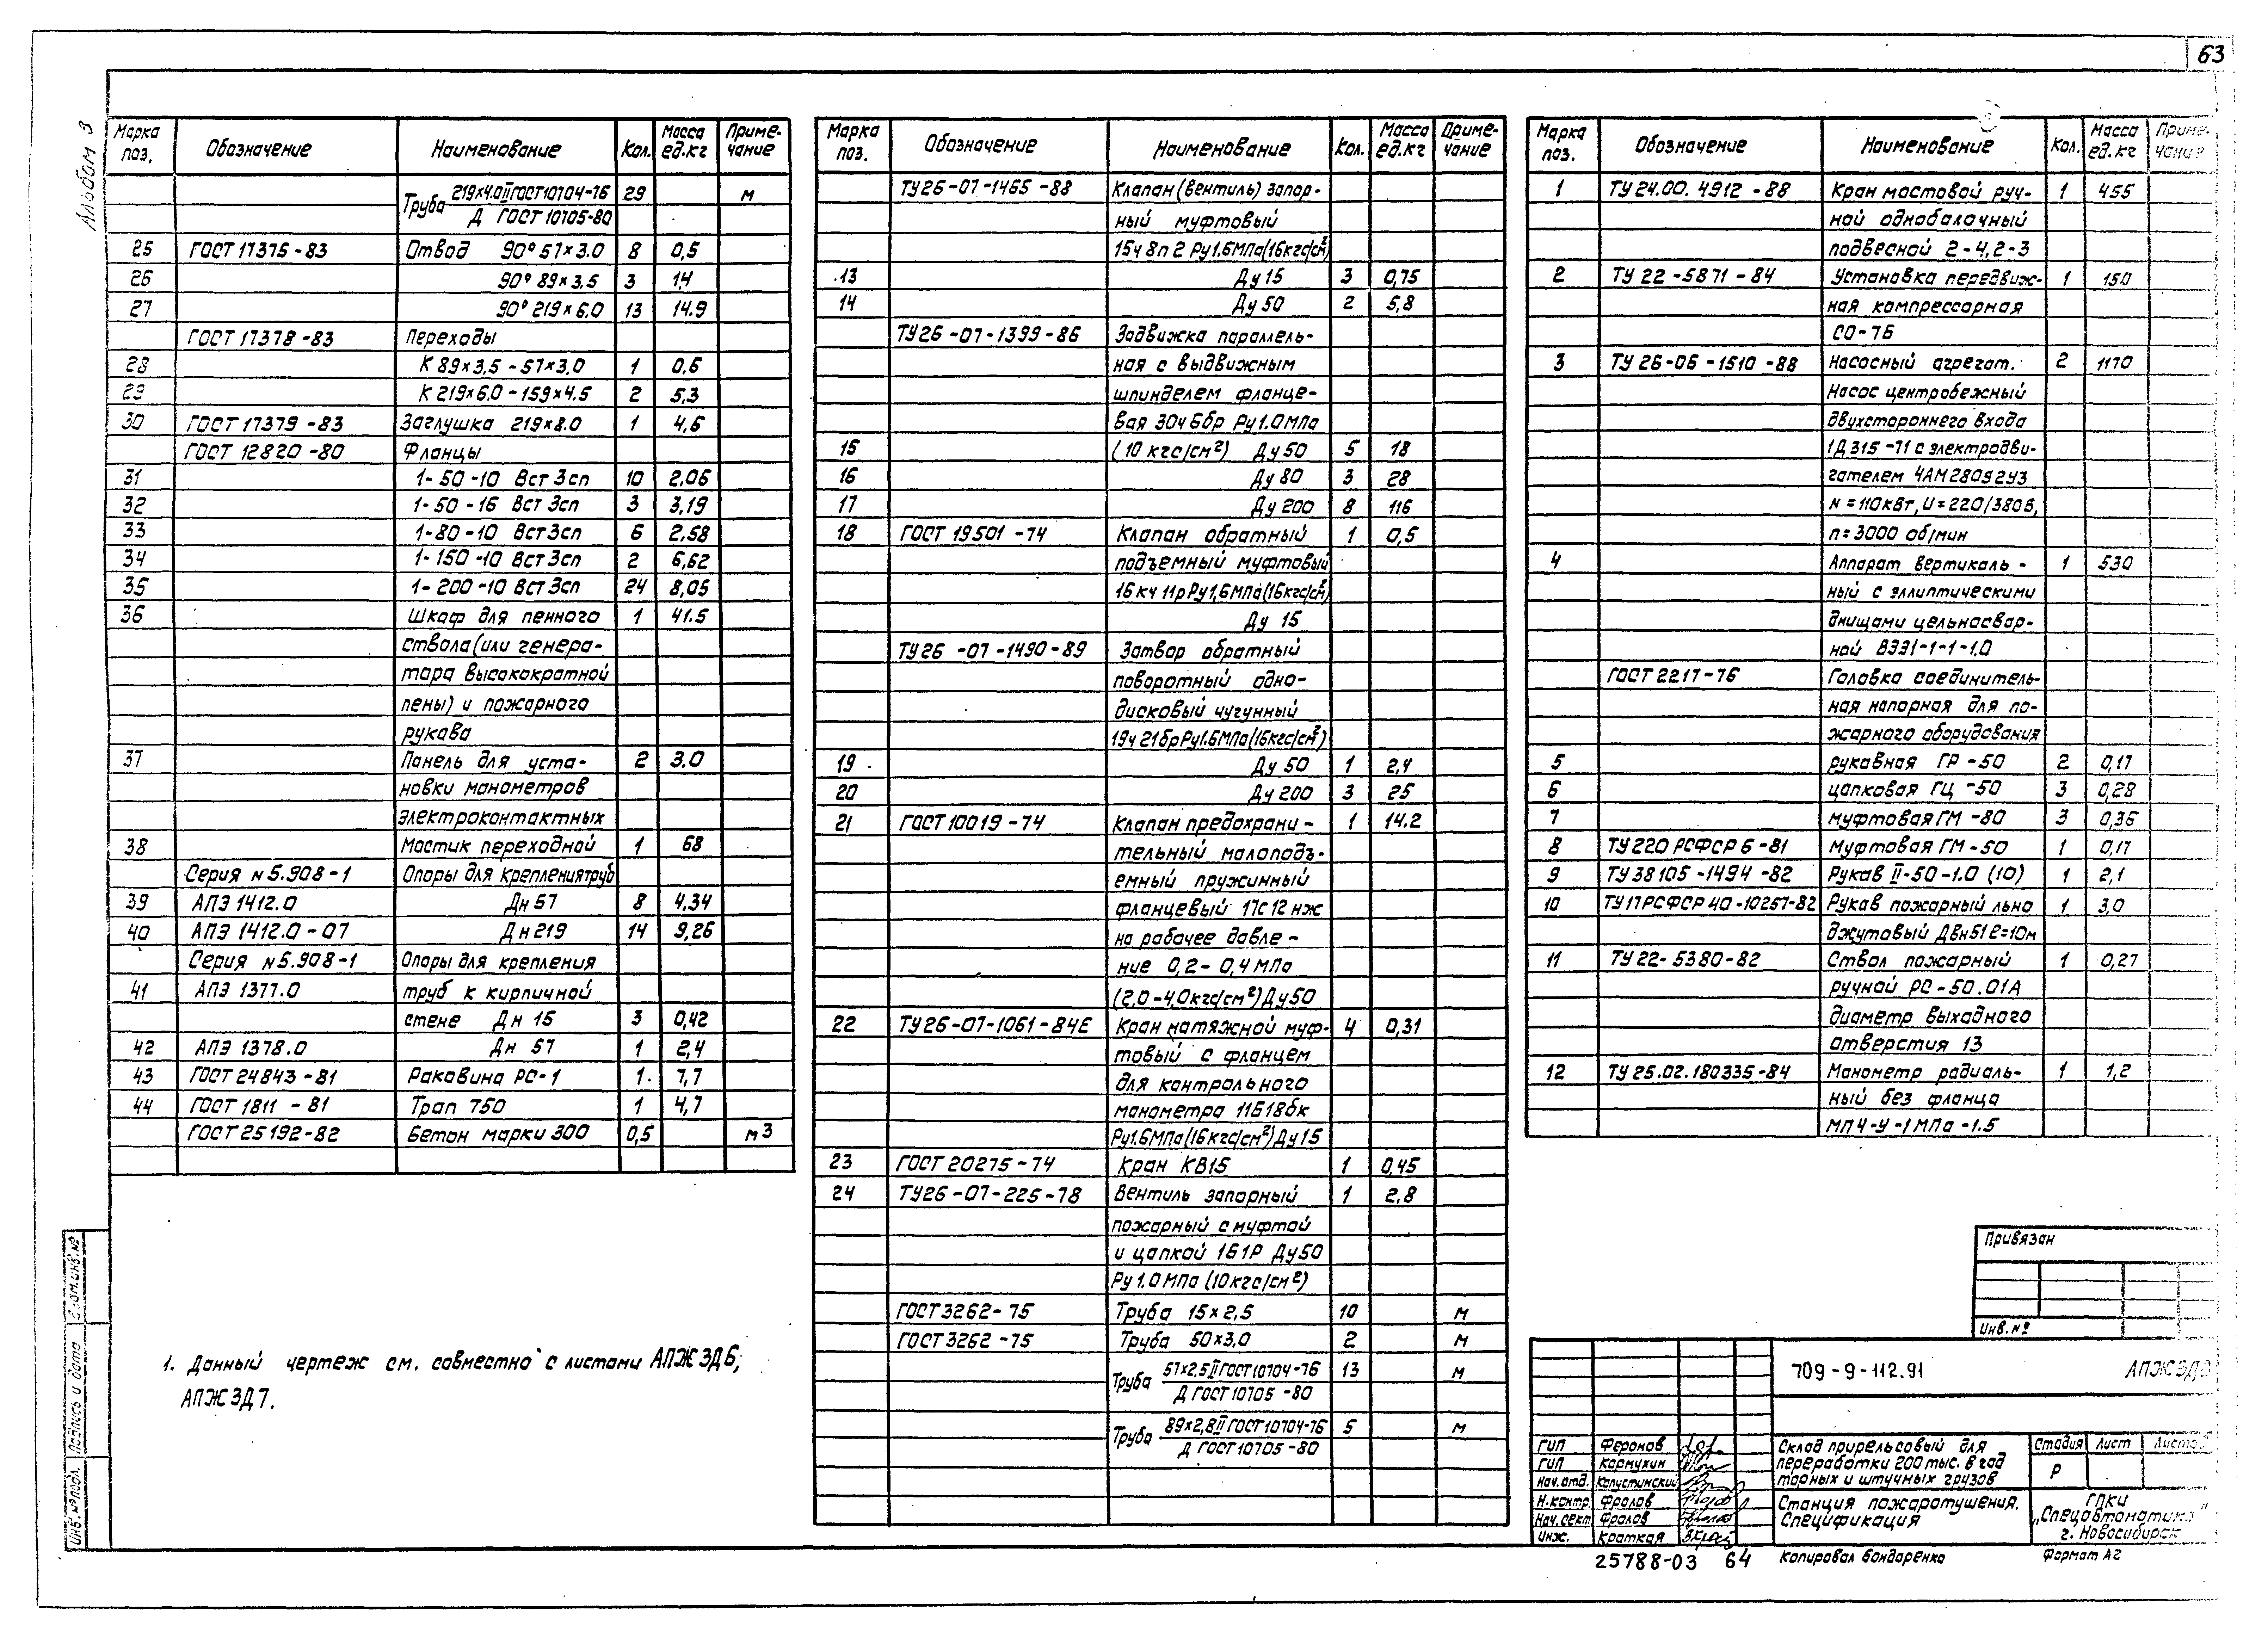 63
Альбом 3
Марка поз. Обозначение Наименование Кол. Масса ед.кг Приме-чание
Труба 219х4.0 II ГОСТ 10704-76 29 м
Д ГОСТ 10705-80
25 ГОСТ 17375-83 Отвод 90° 57х3.0 8 0,5
26 90° 89х3,5 3 1,4
27 90° 219х6.0 13 14.9
ГОСТ 17378-83 Переходы
28 К 89х3,5-57х3,0 1 0,6
29 К 219х6.0-159х4.5 2 5,3
30 ГОСТ 17379-83 Заглушка 219х8.0 1 4,6
ГОСТ 12820-80 Фланцы
31 1-50-10 Вст3сп 10 2,06
32 1-50-16 Вст3сп 3 3,19
33 1-80-10 Вст3сп 6 2,58
34 1-150-10 Вст3сп 2 6,62
35 1-200-10 Вст3сп 24 8,05
36 Шкаф для пенного 1 41.5
ствола (или генера-
тора высокократной
пены) и пожарного
рукава
37 Панель для уста- 2 3.0
новки манометров
электроконтактных
38 Мостик переходной 1 68
Серия №5.908-1 Опоры для крепления труб
39 АПЭ 1412.0 Дн 57 8 4,34
40 АПЭ 1412.0-07 Дн 219 14 9,26
Серия №5.908-1 Опоры для крепления
41 АПЭ 1377.0 труб к кирпичной
стене Дн 15 3 0,42
42 АПЭ 1378.0 Дн 57 1 2,4
43 ГОСТ 24843-81 Раковина РС-1 1. 7,7
44 ГОСТ 1811 -81 Трап Т50 1 4,7
ГОСТ 25192-82 Бетон марки 300 0,5 м3
1. Данный чертеж см. совместно с листами АПЖ ЗД6,
АПЖ ЗД7.
Марка поз. Обозначение Наименование Кол. Масса ед.кг Приме-чание
ТУ26-07-1465-88 Клапан (вентиль) запор-
ный муфтовый
15ч8п2 Ру1,6МПа(16кгс/см²)
13 Ду 15 3 0,75
14 Ду 50 2 5,8
ТУ26-07-1399-86 Задвижка параллель-
ная с выдвижным
шпинделем фланце-
вая 30ч6бр Ру1.0МПа
15 (10 кгс/см²) Ду 50 5 18
16 Ду 80 3 28
17 Ду 200 8 116
18 ГОСТ 19501-74 Клапан обратный 1 0,5
подъемный муфтовый
16кч11р Ру1,6МПа(16кгс/см²)
Ду 15
ТУ26-07-1490-89 Затвор обратный
поворотный одно-
дисковый чугунный
19ч21бр Ру1.6МПа(16кгс/см²)
19 Ду 50 1 2,4
20 Ду 200 3 25
21 ГОСТ 10019-74 Клапан предохрани- 1 14.2
тельный малоподъ-
емный пружинный
фланцевый 17с12нж
на рабочее давле-
ние 0,2-0,4МПа
(2.0-4,0кгс/см²) Ду50
22 ТУ26-07-1061-84Е Кран натяжной муф- 4 0,31
товый с фланцем
для контрольного
манометра 11Б18бк
Ру1.6МПа(16кгс/см²) Ду15
23 ГОСТ 20275-74 Кран КВ15 1 0,45
24 ТУ26-07-225-78 Вентиль запорный 1 2.8
пожарный с муфтой
и цапкой 1Б1Р Ду50
Ру 1.0МПа (10кгс/см²)
ГОСТ 3262-75 Труба 15х2,5 10 м
ГОСТ 3262-75 Труба 50х3,0 2 м
Труба 57х2,5 II ГОСТ 10704-76 13 м
Д ГОСТ 10705-80
Труба 89х2,8 II ГОСТ 10704-76 5 м
Д ГОСТ 10705-80
Марка поз. Обозначение Наименование Кол. Масса ед.кг Приме-чание
1 ТУ24.00.4912-88 Кран мостовой руч- 1 455
ной однобалочный
подвесной 2-4,2-3
2 ТУ 22-5871-84 Установка передвиж- 1 150
ная компрессорная
СО-7Б
3 ТУ 26-06-1510-88 Насосный агрегат. 2 1170
Насос центробежный
двухстороннего входа
1Д315-71 с электродви-
гателем 4АМ280S2У3
N=110кВт, U=220/380В,
n=3000 об/мин
4 Аппарат вертикаль- 1 530
ный с эллиптическими
днищами цельносвар-
ной ВЭЭ1-1-1-1.0
ГОСТ 2217-76 Головка соединитель-
ная напорная для по-
жарного оборудования
5 рукавная ГР-50 2 0,17
6 цапковая ГЦ-50 3 0,28
7 муфтовая ГМ-80 3 0,36
8 ТУ220 РСФСР 6-81 муфтовая ГМ-50 1 0,17
9 ТУ38105-1494-82 Рукав II-50-1.0 (10) 1 2,1
10 ТУ17РСФСР 40-10257-82 Рукав пожарный льно 1 3,0
джутовый Двн51 ℓ=10м
11 ТУ22-5380-82 Ствол пожарный 1 0,27
ручной РС-50.01А
диаметр выходного
отверстия 13
12 ТУ25.02.180335-84 Манометр радиаль- 1 1,2
ный без фланца
МП4-У-1МПа-1.5
Привязан
Инв.№
709-9-112.91 АПЖ ЗД8
ГИП Феронов
ГИП Кармухин
Нач.отд. Капустинский
Н.контр. Фролов
Нач.сект Фролов
Инж. Краткая
Склад прирельсовый для
переработки 200 тыс. в год
тарных и штучных грузов
Стадия Лист Листов
Р
Станция пожаротушения.
Спецификация
ГПКИ
„Спецавтоматика"
г. Новосибирск
25788-03 64 Копировал Бондаренко Формат А2
Инв.№подл. Подпись и дата Взам.инв.№